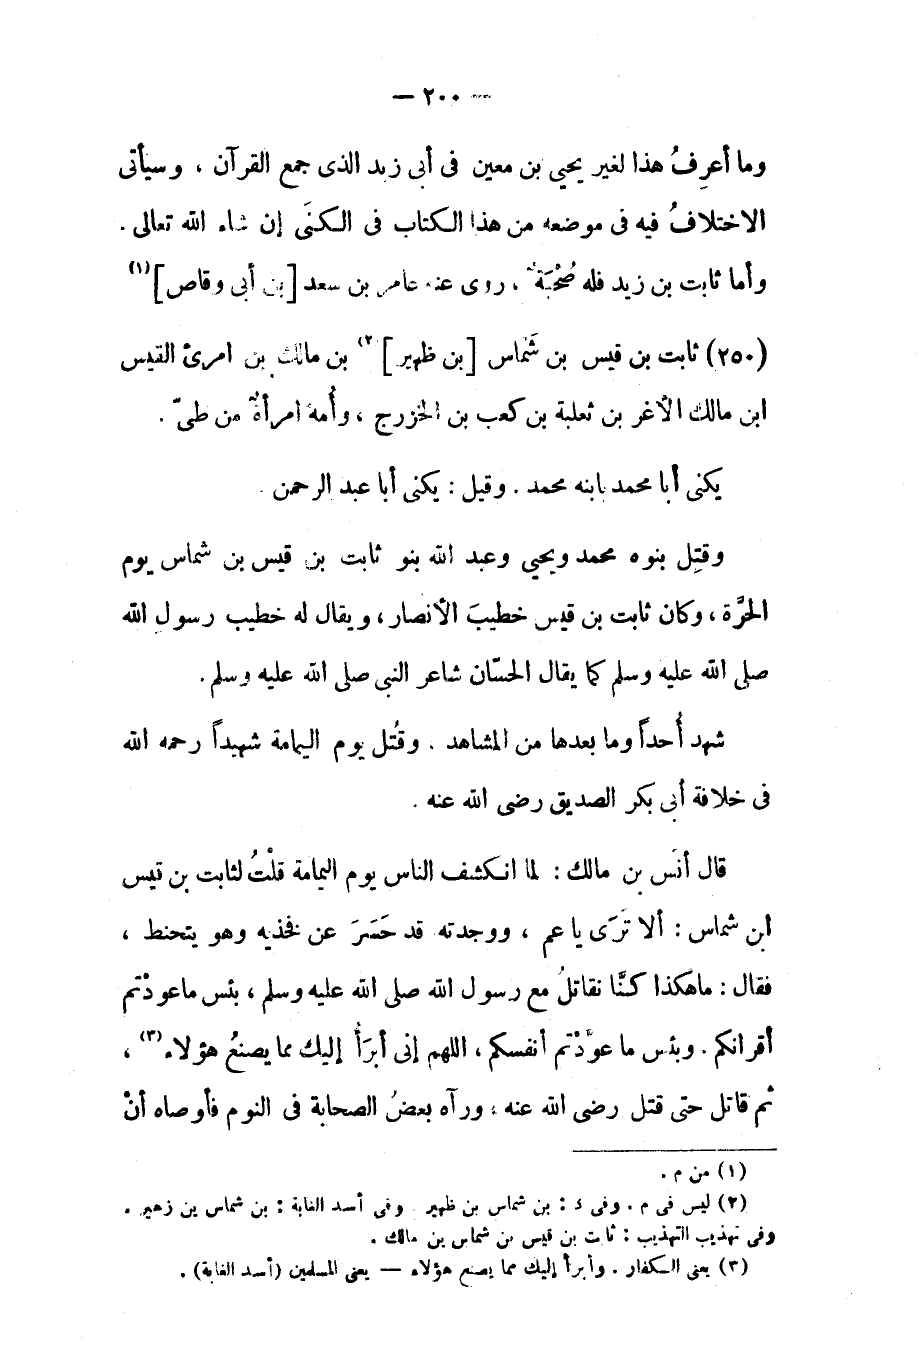 — ٢٠٠ —
وما أعرِفُ هذا لغير يحيى بن معين فى أبى زيد الذى جمع القرآن ، وسيأتى
الاختلافُ فيه فى موضعه من هذا الكتاب فى الكنَى إن شاء الله تعالى .
وأما ثابت بن زيد فله صُحْبَة ، روى عنه عامر بن سعد [بن أبى وقاص](١)
(٢٥٠) ثابت بن قيس بن شَماس [بن ظهير](٢) بن مالك بن امرئ القيس
ابن مالك الأغر بن ثعلبة بن كعب بن الخزرج ، وأُمه امرأة من طىّ .
يكنى أبا محمد بابنه محمد . وقيل : يكنى أبا عبد الرحمن .
وقتِل بنوه محمد ويحيى وعبد الله بنو ثابت بن قيس بن شماس يوم
الحرَّة ، وكان ثابت بن قيس خطيبَ الأنصار ، ويقال له خطيب رسول الله
صلى الله عليه وسلم كما يقال الحسّان شاعر النبى صلى الله عليه وسلم .
شهد أُحداً وما بعدها من المشاهد . وقُتل يوم اليمامة شهيداً رحمه الله
فى خلافة أبى بكر الصديق رضى الله عنه .
قال أنَس بن مالك : لما انكشف الناس يوم اليمامة قلْتُ لثابت بن قيس
ابن شماس : ألا تَرَى يا عم ، ووجدته قد حَسَرَ عن فخذيه وهو يتحنط ،
فقال : ماهكذا كنَّا نقاتلُ مع رسول الله صلى الله عليه وسلم ، بئس ماعودْتم
أقرانكم . وبئس ما عوَّدْتم أنفسكم ، اللهم إنى أبرَأُ إليك مما يصنعُ هؤلاء(٣) ،
ثم قاتل حتى قتل رضى الله عنه ، ورآه بعضُ الصحابة فى النوم فأوصاه أنْ
(١) من م .
(٢) ليس فى م . وفى ء : بن شماس بن ظهير . وفى أسد الغابة : بن شماس بن زهير .
وفى تهذيب التهذيب : ثابت بن قيس بن شماس بن مالك .
(٣) يعنى الكفار . وأبرأ إليك مما يصنع هؤلاء — يعنى المسلمين (أسد الغابة) .